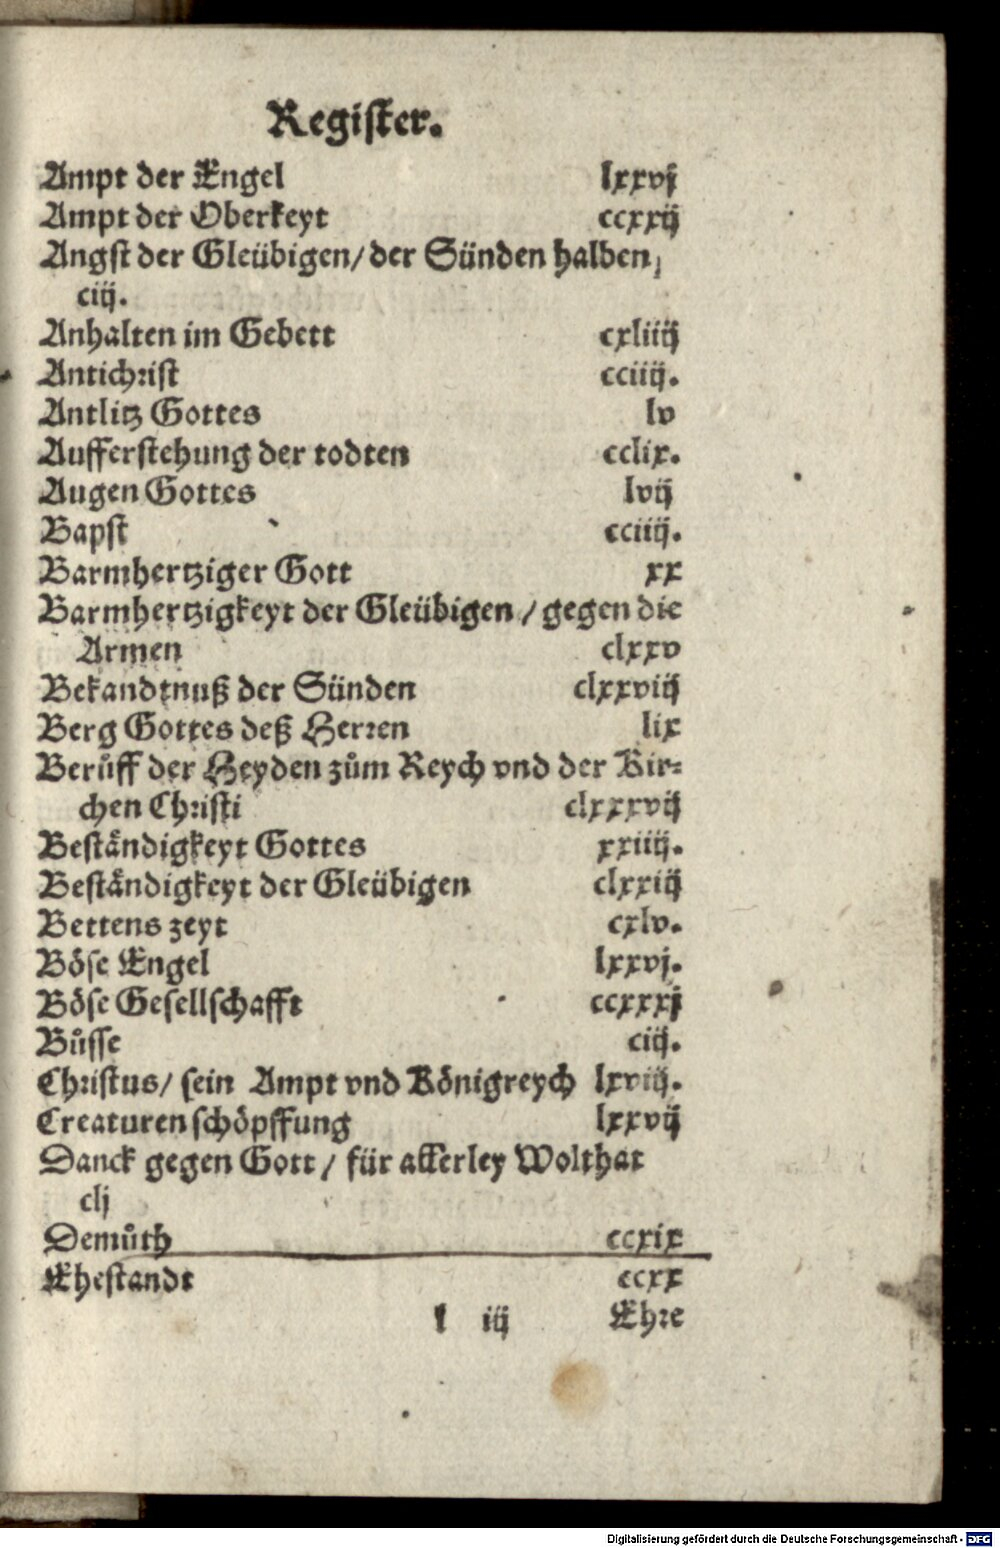 Register.
Ampt der Engel lxxvj
Ampt der Oberkeyt ccxxij
Angst der Gleübigen/der Sünden halben,
ciij.
Anhalten im Gebett cxliiij
Antichrist cciiij.
Antlitz Gottes lv
Aufferstehung der todten cclix.
Augen Gottes lvij
Bapst cciiij.
Barmhertziger Gott xx
Barmhertzigkeyt der Gleübigen/gegen die
Armen clxxv
Bekandtnuß der Sünden clxxviij
Berg Gottes deß Herren lix
Berůff der Heyden zům Reych vnd der Kir⸗
chen Christi clxxxvij
Beständigkeyt Gottes xxiiij.
Beständigkeyt der Gleübigen clxxiij
Bettens zeyt cxlv.
Böse Engel lxxvj.
Böse Gesellschafft ccxxxj
Bůsse ciij.
Christus/ sein Ampt vnd Königreych lxviij.
Creaturen schöpffung lxxvij
Danck gegen Gott/ für allerley Wolthat
clj
Demůth ccxix
Ehestandt ccxx
l iij Ehre
Digitalisierung gefördert durch die Deutsche Forschungsgemeinschaft - DFG